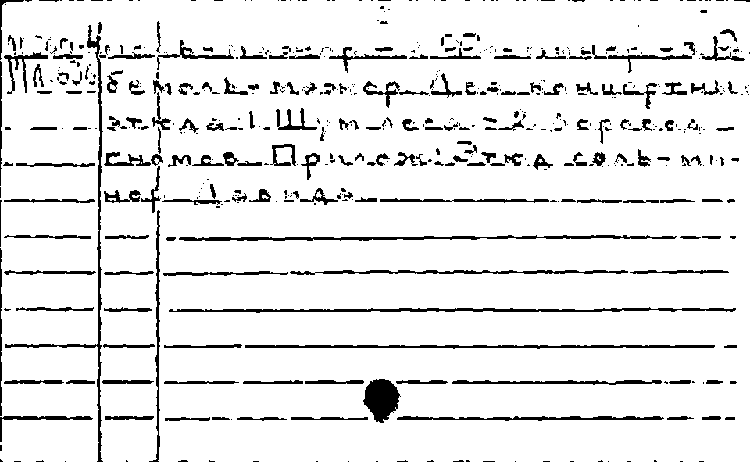 ля ь-мажор - 2 Фа-минор - 3 Ре
бемоль-мажор Два концертных
этюда 1 Шум леса - 2 Хоровод
гномов Прилож: Этюд соль-ми-
нор Давида